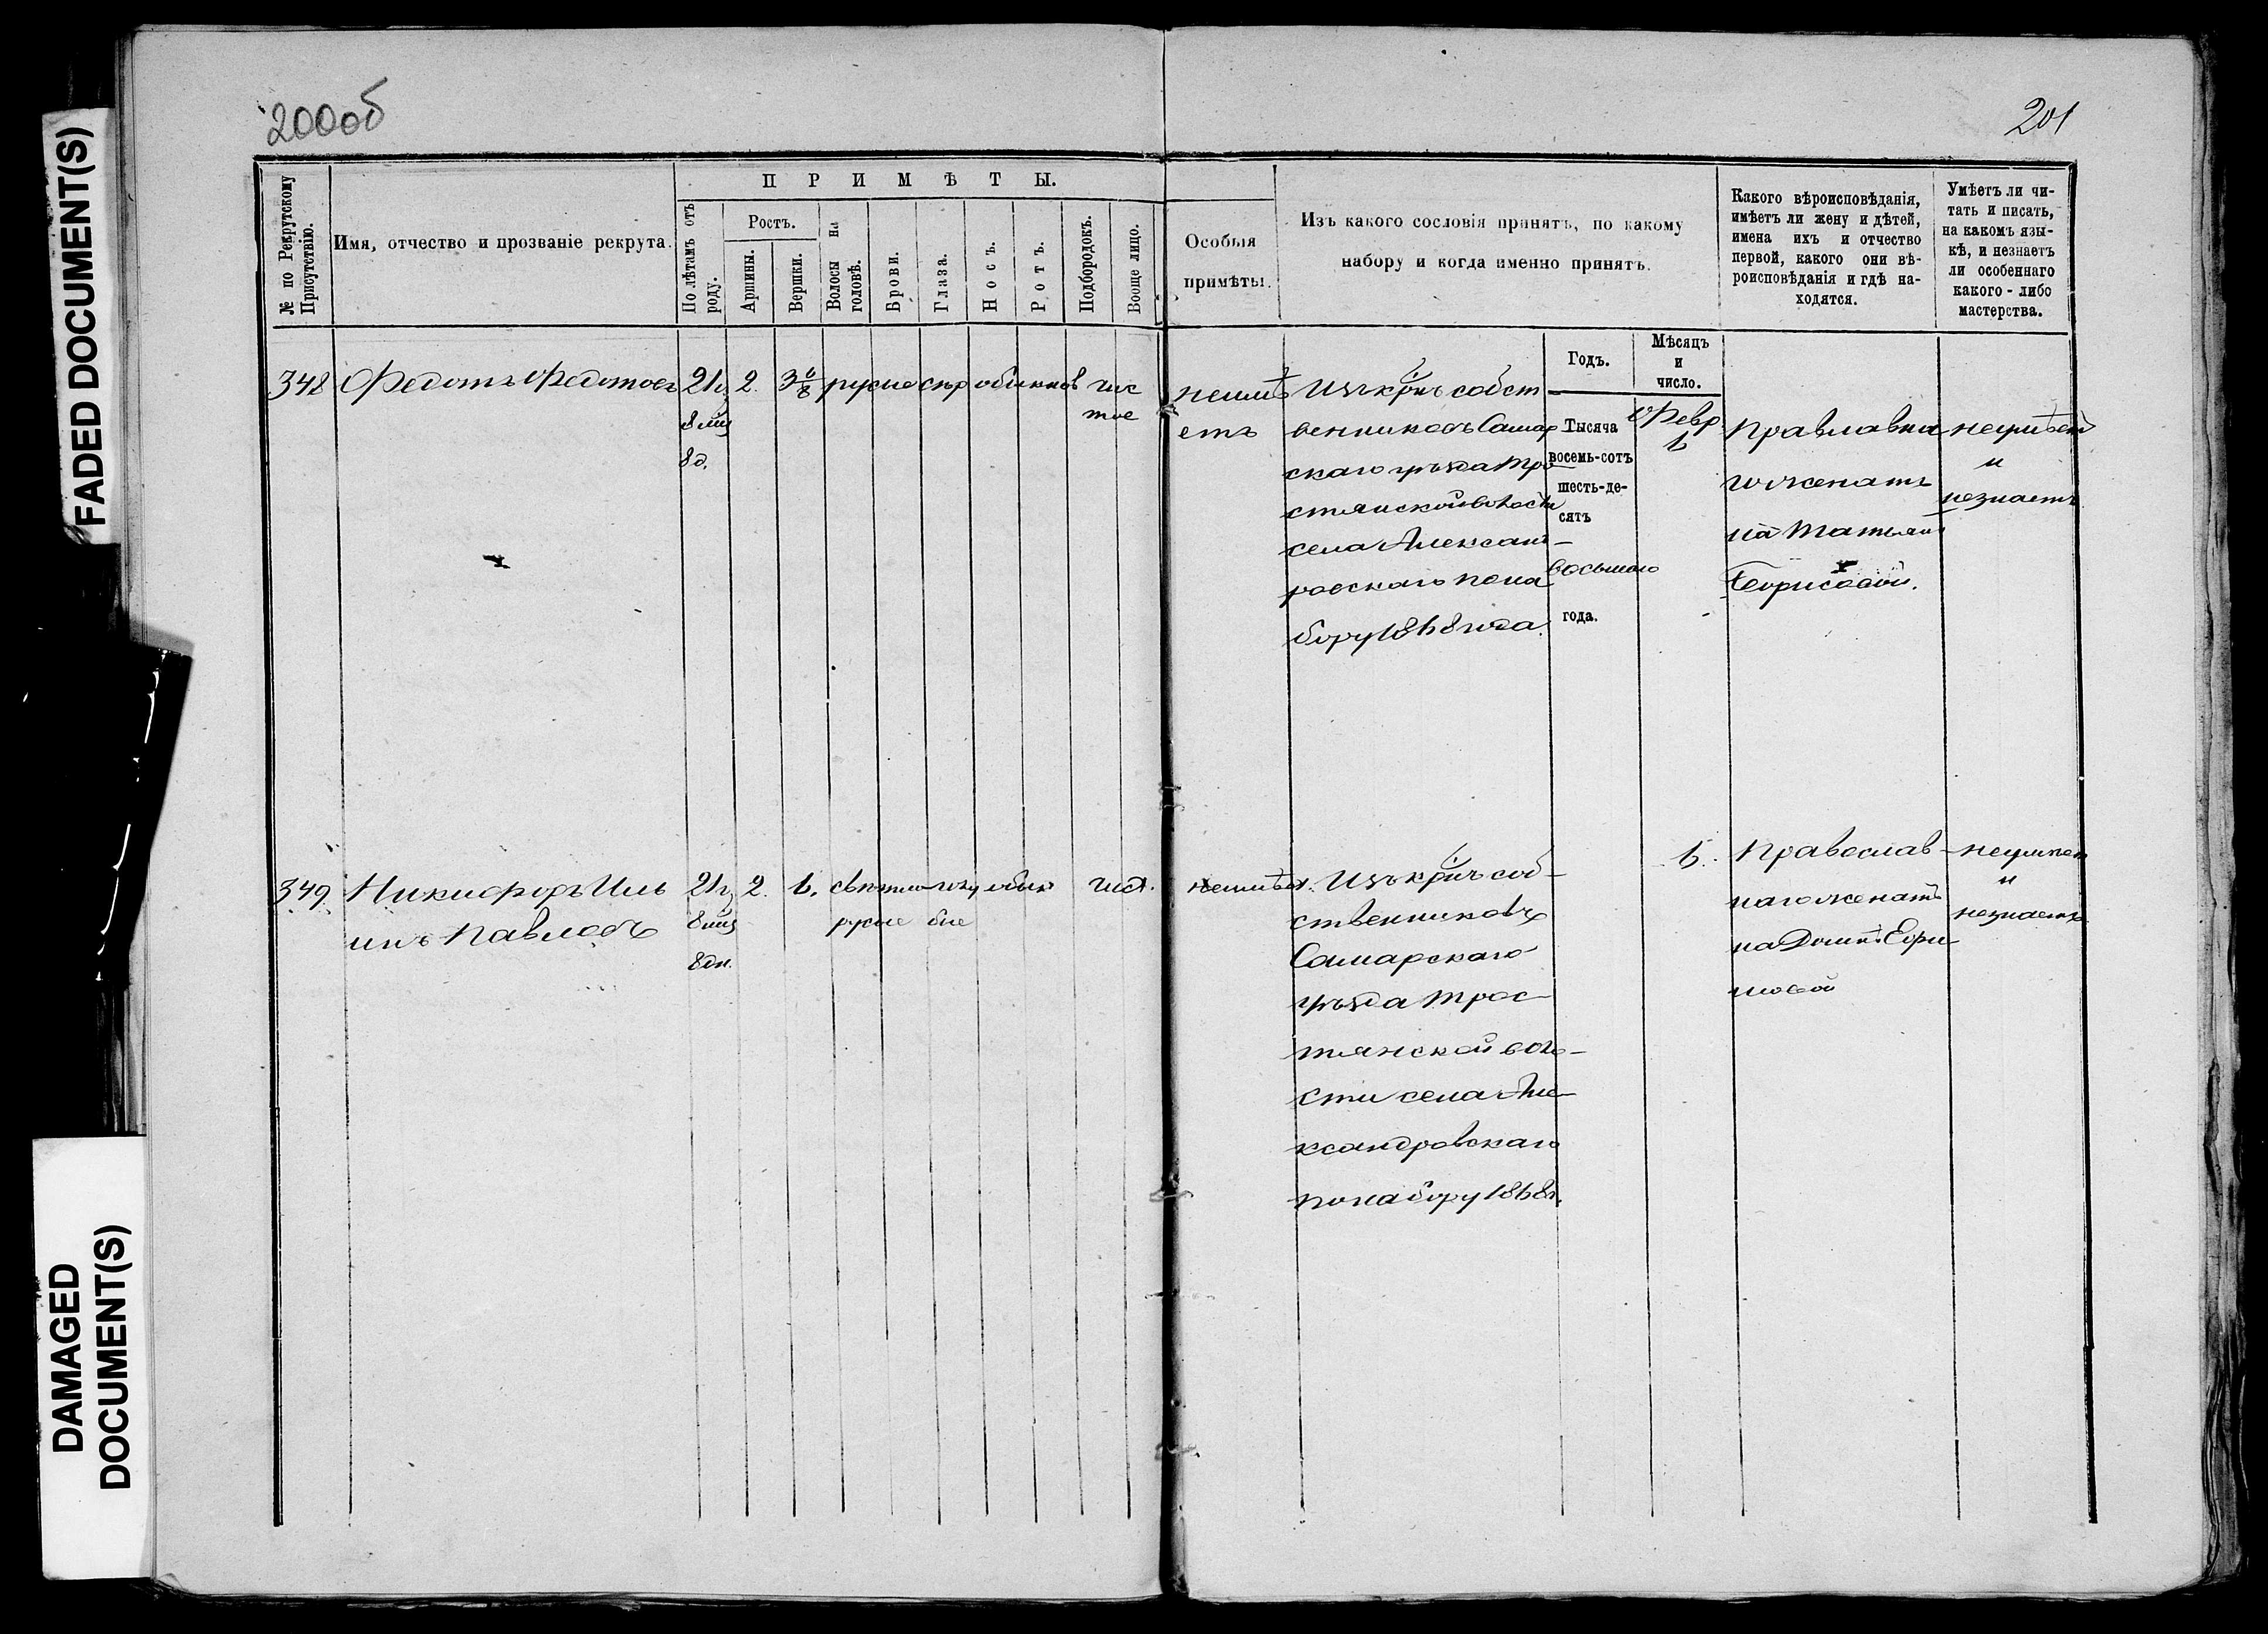 FADED DOCUMENT(S)
DAMAGED DOCUMENT(S)
200об
201
№ по Рекрутскому Присутствію.
Имя, отчество и прозваніе рекрута.
ПРИМѢТЫ.
По лѣтамъ отъ роду.
Ростъ.
Аршины.
Вершки.
Волосы на головѣ.
Брови.
Глаза.
Носъ.
Ротъ.
Подбородокъ.
Вооще лицо.
Особыя
примѣты.
Изъ какого сословія принятъ, по какому
набору и когда именно принятъ.
Какого вѣроисповѣданія,
имѣетъ ли жену и дѣтей,
имена ихъ и отчество
первой, какого они вѣ-
роисповѣданія и гдѣ на-
ходятся.
Умѣетъ ли чи-
тать и писать,
на какомъ язы-
кѣ, и незнаетъ
ли особеннаго
какого-либо
мастерства.
Годъ.
Мѣсяцъ
и
число.
348 Федотъ Федотовъ 21 г. 2. 3 русые сѣр обыкнов чис
8 мц тое
8 д.
неимѣ
етъ
Изъ крнъ собст
венниковъ Самар
скаго уѣзда Тро
стянской волости
села Алексан
ровскаго пона
бору 1868 года.
Тысяча
восемь-сотъ
шесть-де-
сятъ
восьмаго
года.
Февр
6
Правлавна
го женатъ
на Татьянѣ
Борисовой.
неумѣетъ
и
незнаетъ
349 Никифоръ Иль 21 г 2. 6. свѣтло голу обык чист.
инъ Павловъ 8 мц русые бые
8 дн.
неимѣет.
Изъ крнъ соб-
ственниковъ
Самарскаго
уѣзда Трос-
тянской воло-
сти села Але-
ксандровскаго
по набору 1868 г.
6.
Православ-
наго женатъ
на Домнѣ Ефи
мовой
неумѣет
и
незнаетъ